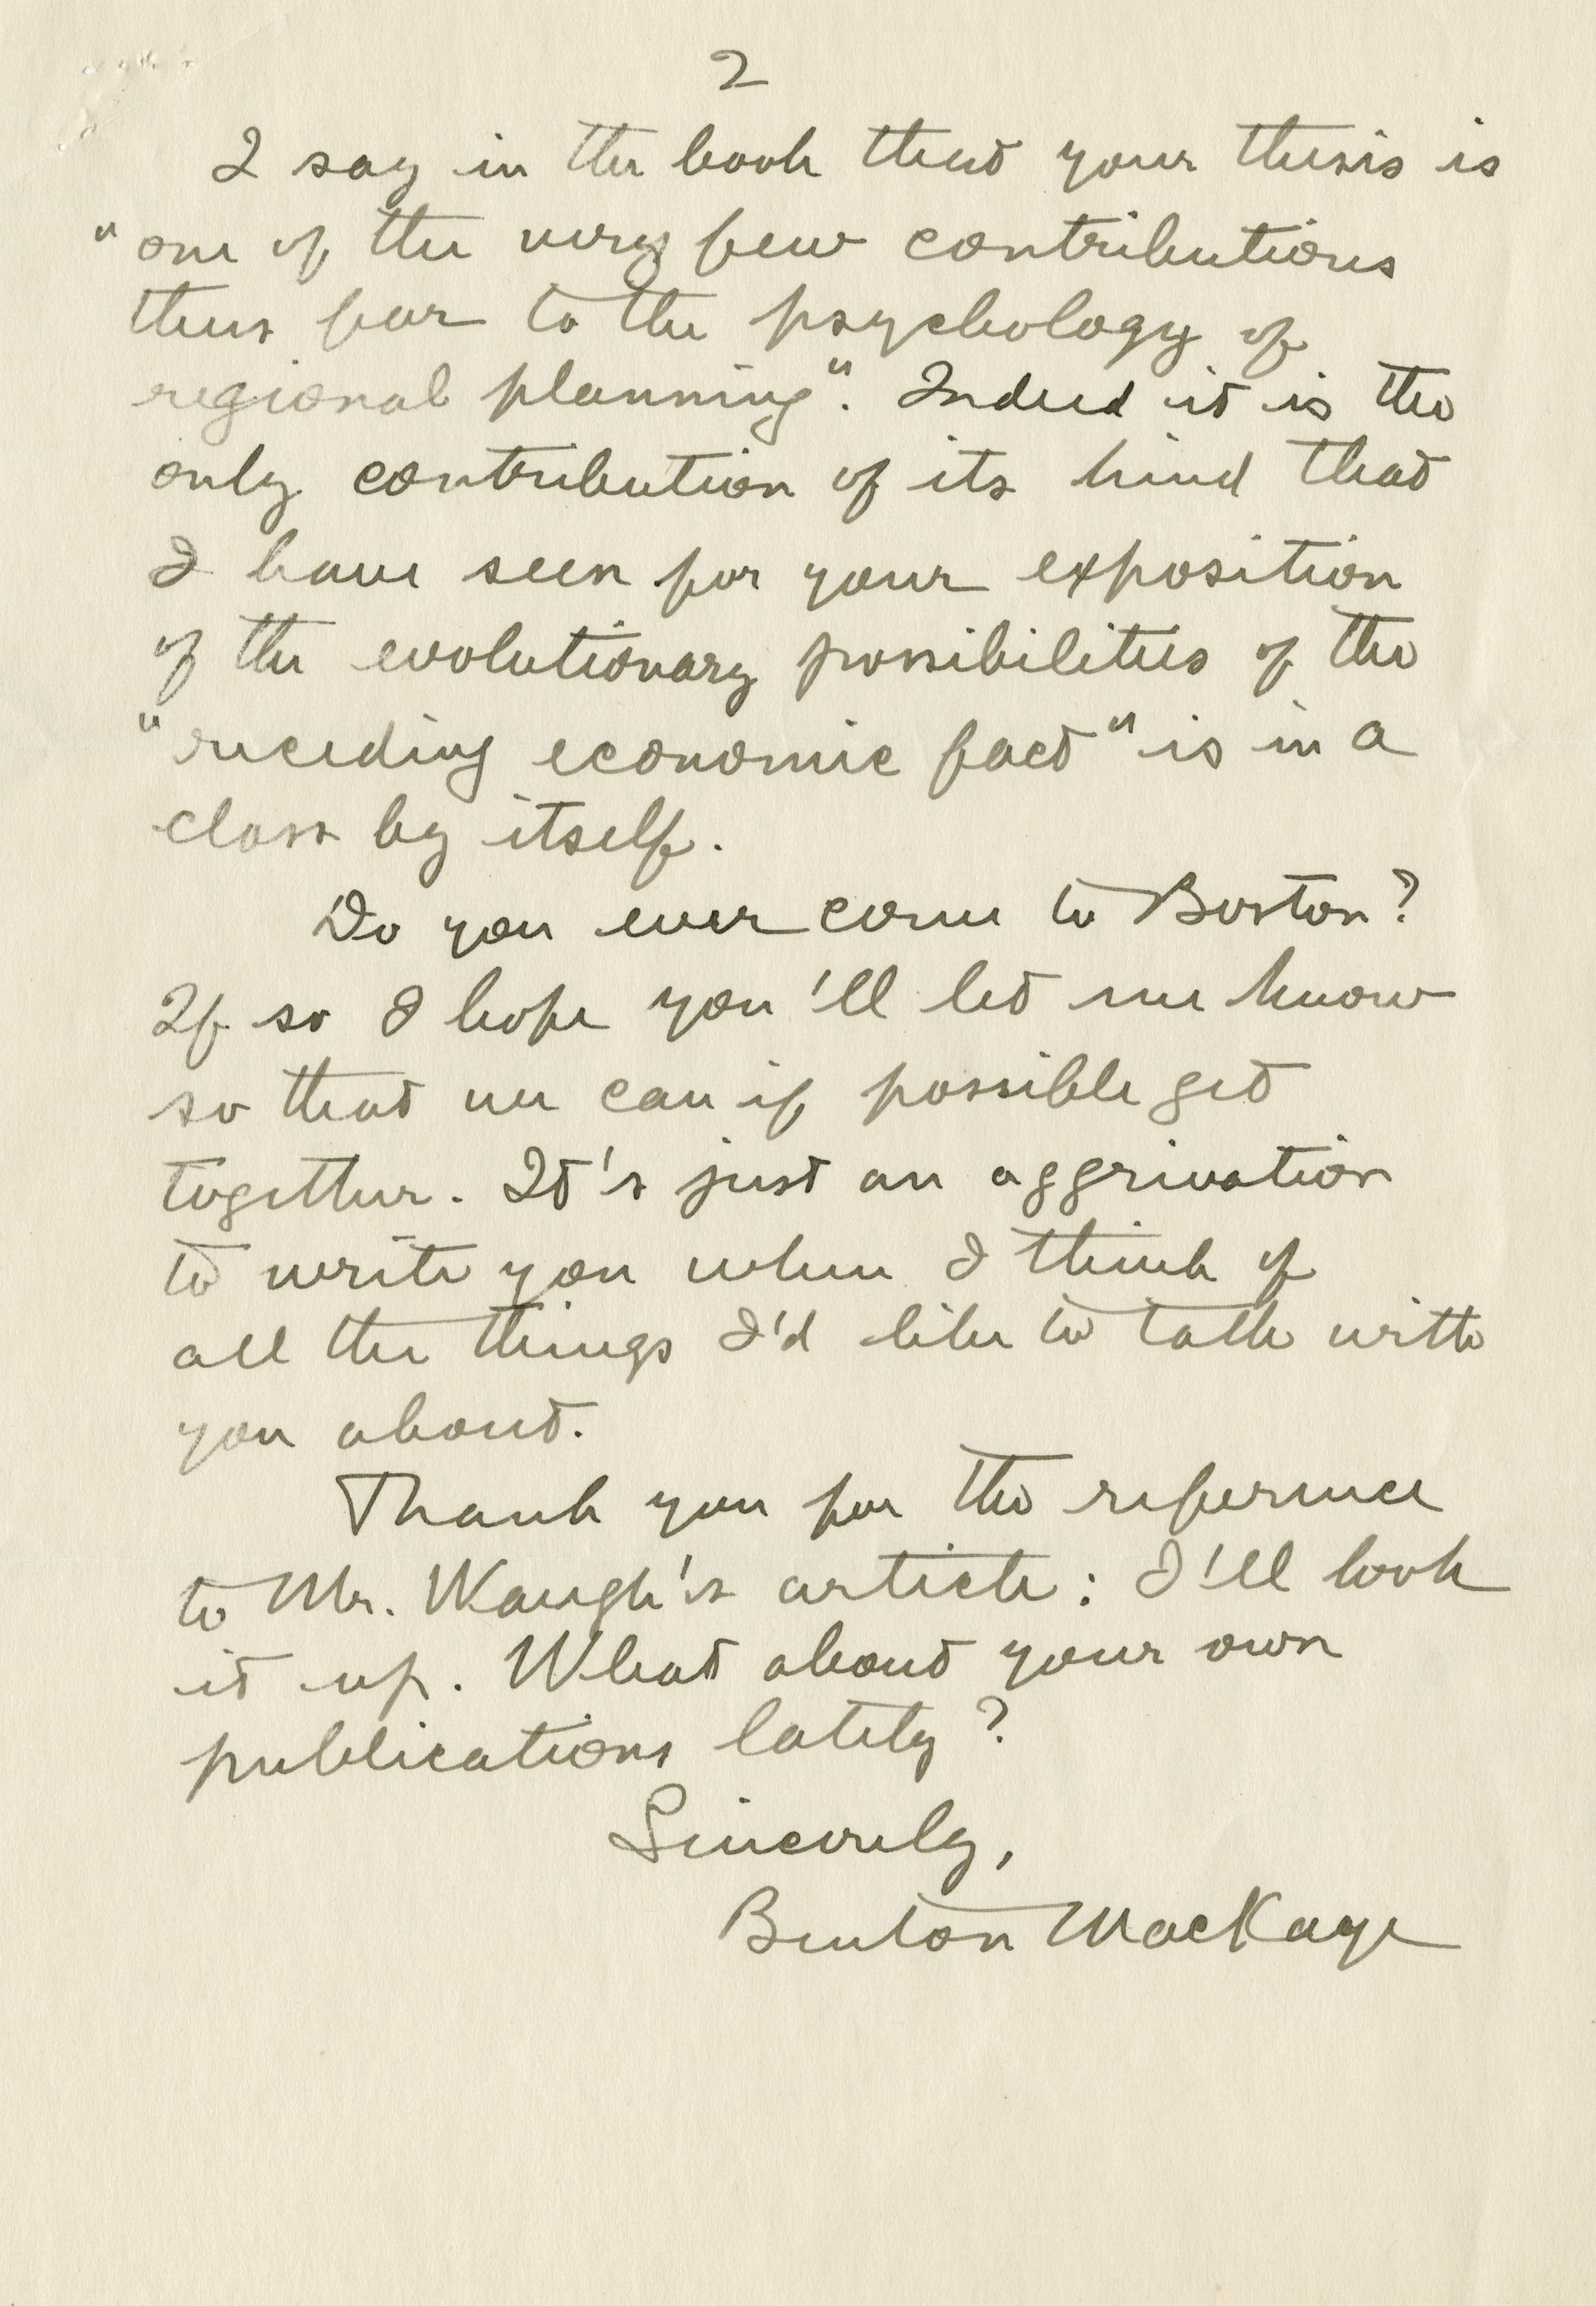 2
I say in the book that your thesis is
"one of the very few contributions
thus far to the psychology of
regional planning". Indeed it is the
only contribution of its kind that
I have seen for your exposition
of the evolutionary possibilities of the
"receding economic fact" is in a
class by itself.
Do you ever come to Boston?
If so I hope you'll let me know
so that we can if possible get
together. It's just an aggrivation
to write you when I think of
all the things I'd like to talk with
you about.
Thank you for the reference
to Mr. Waugh's article: I'll look
it up. What about your own
publications lately?
Sincerely,
Benton MacKaye